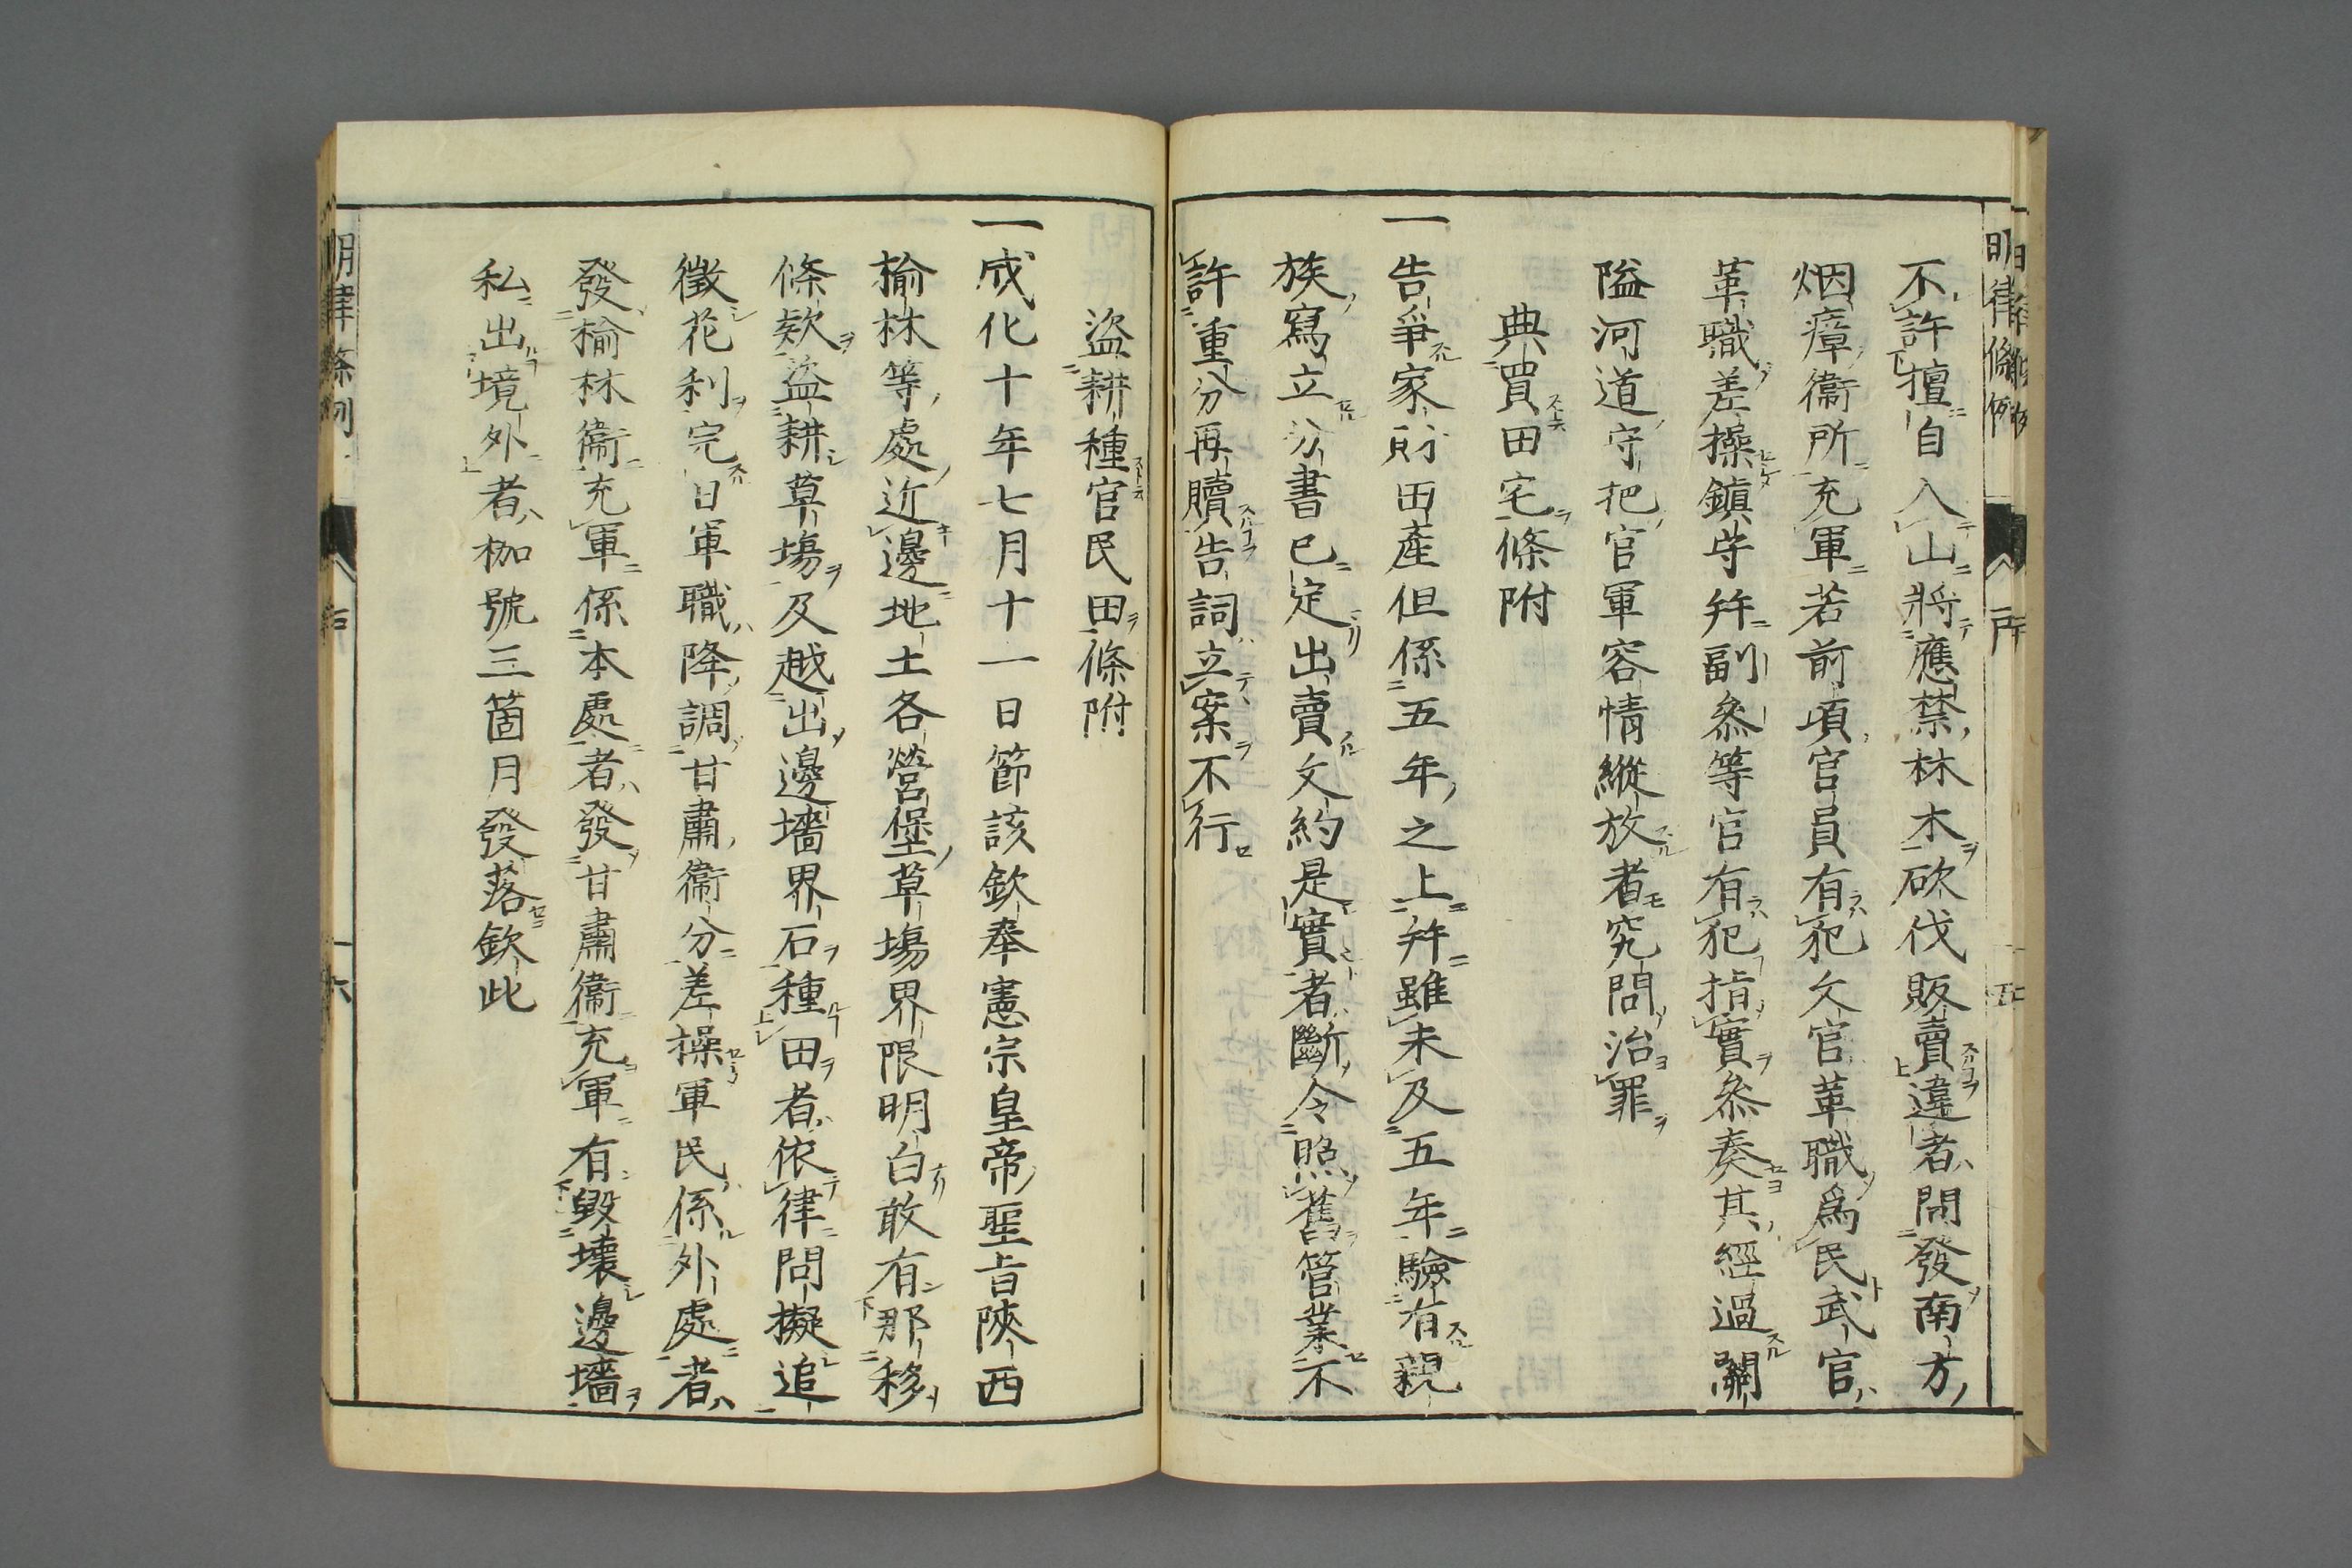 不許擅自入山將應禁林木砍伐販賣違者問發南方
烟瘴衞所充軍若前項官員有犯文官革職爲民武官
革職差操鎮守幷副叅等官有犯指實叅奏其經過關
隘河道守把官軍容情縱放者究問治罪
典買田宅條附
一告爭家財田產但係五年之上幷雖未及五年驗有親
族寫立分書已定出賣文約是實者斷令照舊管業不
許重分再贖告詞立案不行
盜耕種官民田條附
一成化十年七月十一日節該欽奉憲宗皇帝聖旨陝西
榆林等處近邊地土各營堡草塲界限明白敢有那移
條欵盜耕草塲及越出邊墻界石種田者依律問擬追
徵花利完日軍職降調甘肅衞分差操軍民係外處者
發榆林衞充軍係本處者發甘肅衞充軍有毀壞邊墻
私出境外者枷號三箇月發落欽此
明律條例
十六